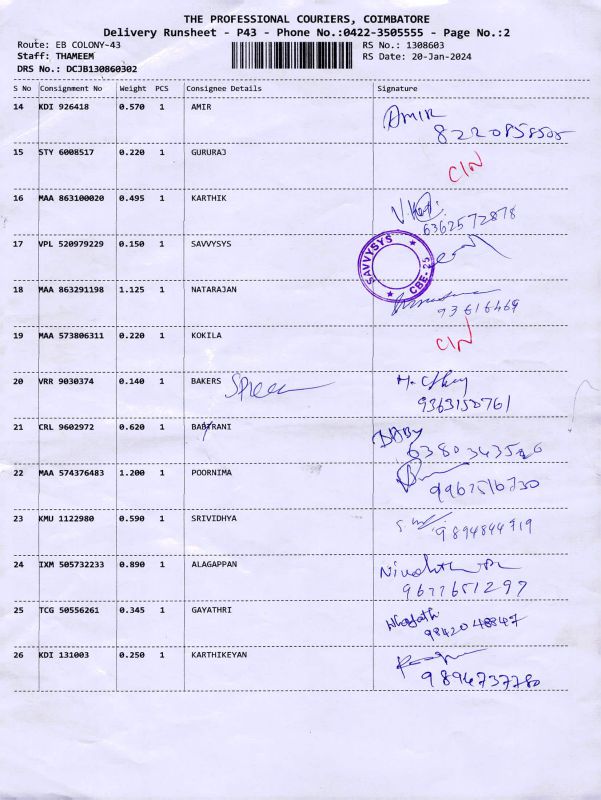 THE PROFESSIONAL COURIERS, COIMBATORE
Delivery Runsheet - P43 - Phone No.:0422-3505555 - Page No.:2
Route: EB COLONY-43 RS No.: 1308603
Staff: THAMEEM RS Date: 20-Jan-2024
DRS No.: DCJB130860302
S No Consignment No Weight PCS Consignee Details Signature
14 KDI 926418 0.570 1 AMIR AMIR
15 STY 6008517 0.220 1 GURURAJ C/N
16 MAA 863100020 0.495 1 KARTHIK
6362572878
17 VPL 520979229 0.150 1 SAVVYSYS
SAVVYSYS
CBE-25
18 MAA 863291198 1.125 1 NATARAJAN
19 MAA 573806311 0.220 1 KOKILA C/N
20 VRR 9030374 0.140 1 BAKERS
9363150761
21 CRL 9602972 0.620 1 BABYRANI
22 MAA 574376483 1.200 1 POORNIMA
23 KMU 1122980 0.590 1 SRIVIDHYA
9894844719
24 IXM 505732233 0.890 1 ALAGAPPAN
9677651297
25 TCG 50556261 0.345 1 GAYATHRI
9842048847
26 KDI 131003 0.250 1 KARTHIKEYAN
9894737780